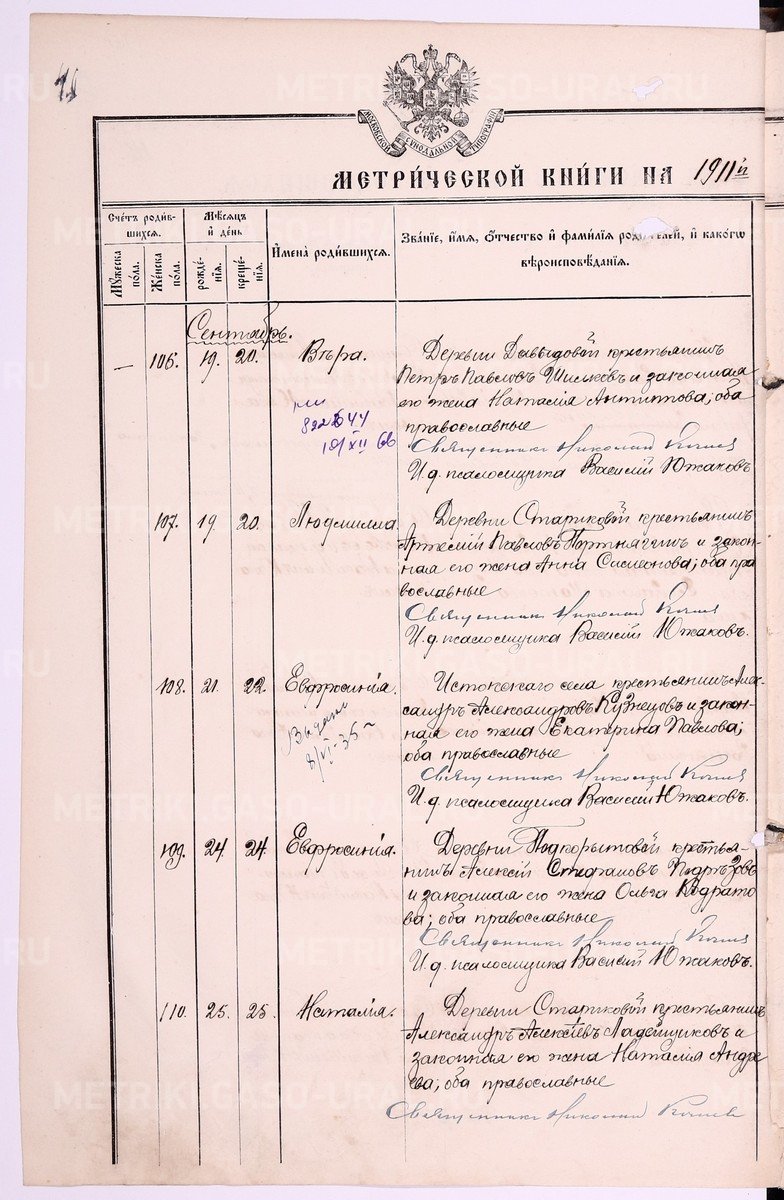 МОСКОВСКОЙ СИНОДАЛЬНОЙ ТИПОГРАФІИ
МЕТРИ́ЧЕСКОЙ КНИ́ГИ НА 1911й
Сче́тъ роди́в-
шихся.
Му́жеска
по́ла.
Же́нска
по́ла.
Мѣ́сяцъ
и́ де́нь
рожде́-
нїя.
креще́-
нїя.
И҆мена̀ роди́вшихся.
Зва́нїе, и҆́мя, ѻ҆́тчество и҆ фами́лїя роди́телей, и҆ како́гѡ
вѣроисповѣ́данїя.
Сентябрь.
— 106. 19. 20. Вѣра.
Деревни Давыдовой крестьянинъ
Петръ Павловъ Шильковъ и законная
его жена Наталія Антипова; оба
православные
Священникъ Николай
И. д. псаломщика Василій Южаковъ
10/XII 66
107. 19. 20. Людмилла.
Деревни Стариковой крестьянинъ
Артемій Павловъ Портнягинъ и закон-
ная его жена Анна Симеонова; оба пра
вославные
Священникъ Николай
И. д. псаломщика Василій Южаковъ.
108. 21. 22. Евфросинія.
Выдано
8/VI-35
Истокскаго села крестьянинъ Але-
ксандръ Александровъ Кузнецовъ и закон-
ная его жена Екатерина Павлова;
оба православные
Священникъ Николай
И. д. псаломщика Василій Южаковъ.
109. 24. 24. Евфросинія.
Деревни Подкорытовой крестья-
нинъ Алексій Стефановъ Подрѣзовъ
и законная его жена Ольга Кодрато
ва; оба православные
Священникъ Николай
И. д. псаломщика Василій Южаковъ.
110. 25. 25. Наталія.
Деревни Стариковой крестьянинъ
Александръ Алексѣевъ Ладейщиковъ и
законная его жена Наталія Андре
ева; оба православные
Священникъ Николай